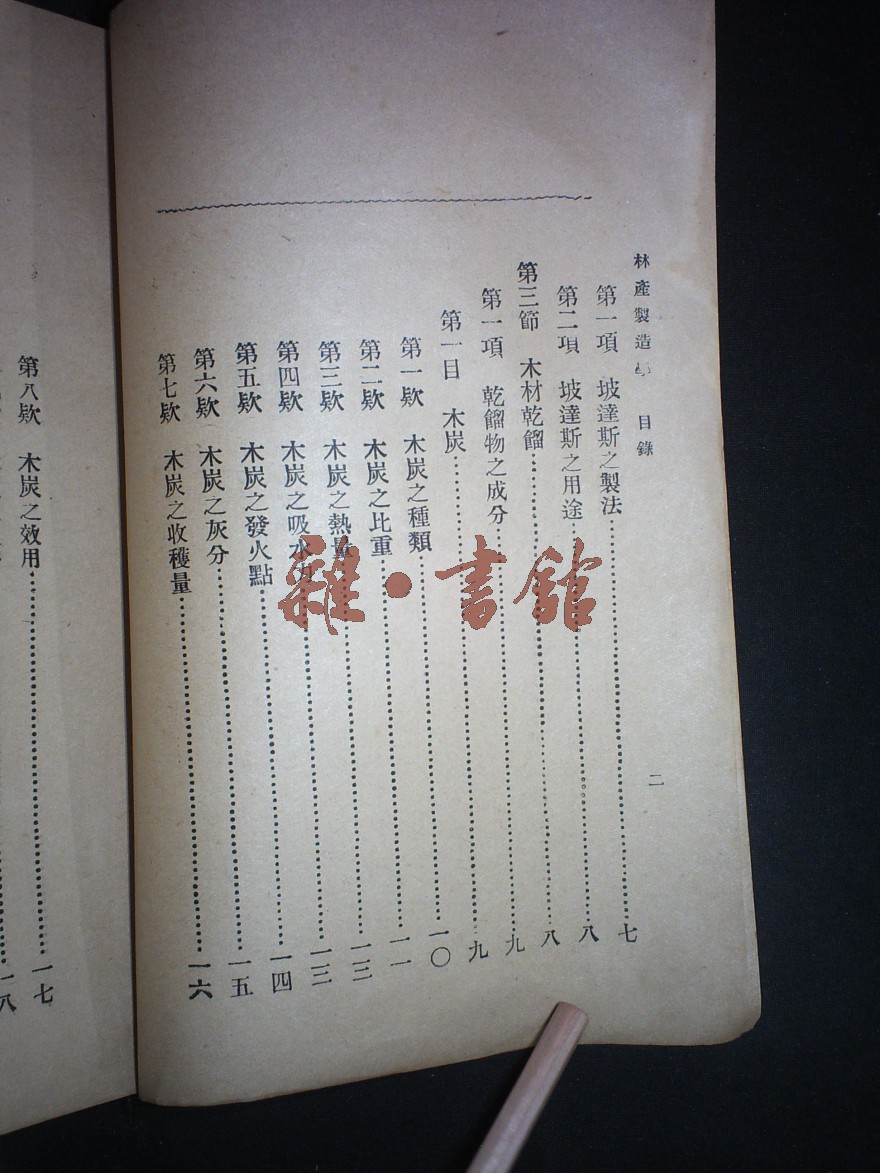 林產製造學 目錄 二
第一項 坡達斯之製法……七
第二項 坡達斯之用途……八
第三節 木材乾餾……八
第一項 乾餾物之成分……九
第一目 木炭……九
第一欵 木炭之種類……一〇
第二欵 木炭之比重……一一
第三欵 木炭之熱量……一三
第四欵 木炭之吸水……一三
第五欵 木炭之發火點……一四
第六欵 木炭之灰分……一五
第七欵 木炭之收穫量……一六
第八欵 木炭之效用……一七
一八
雜·書館